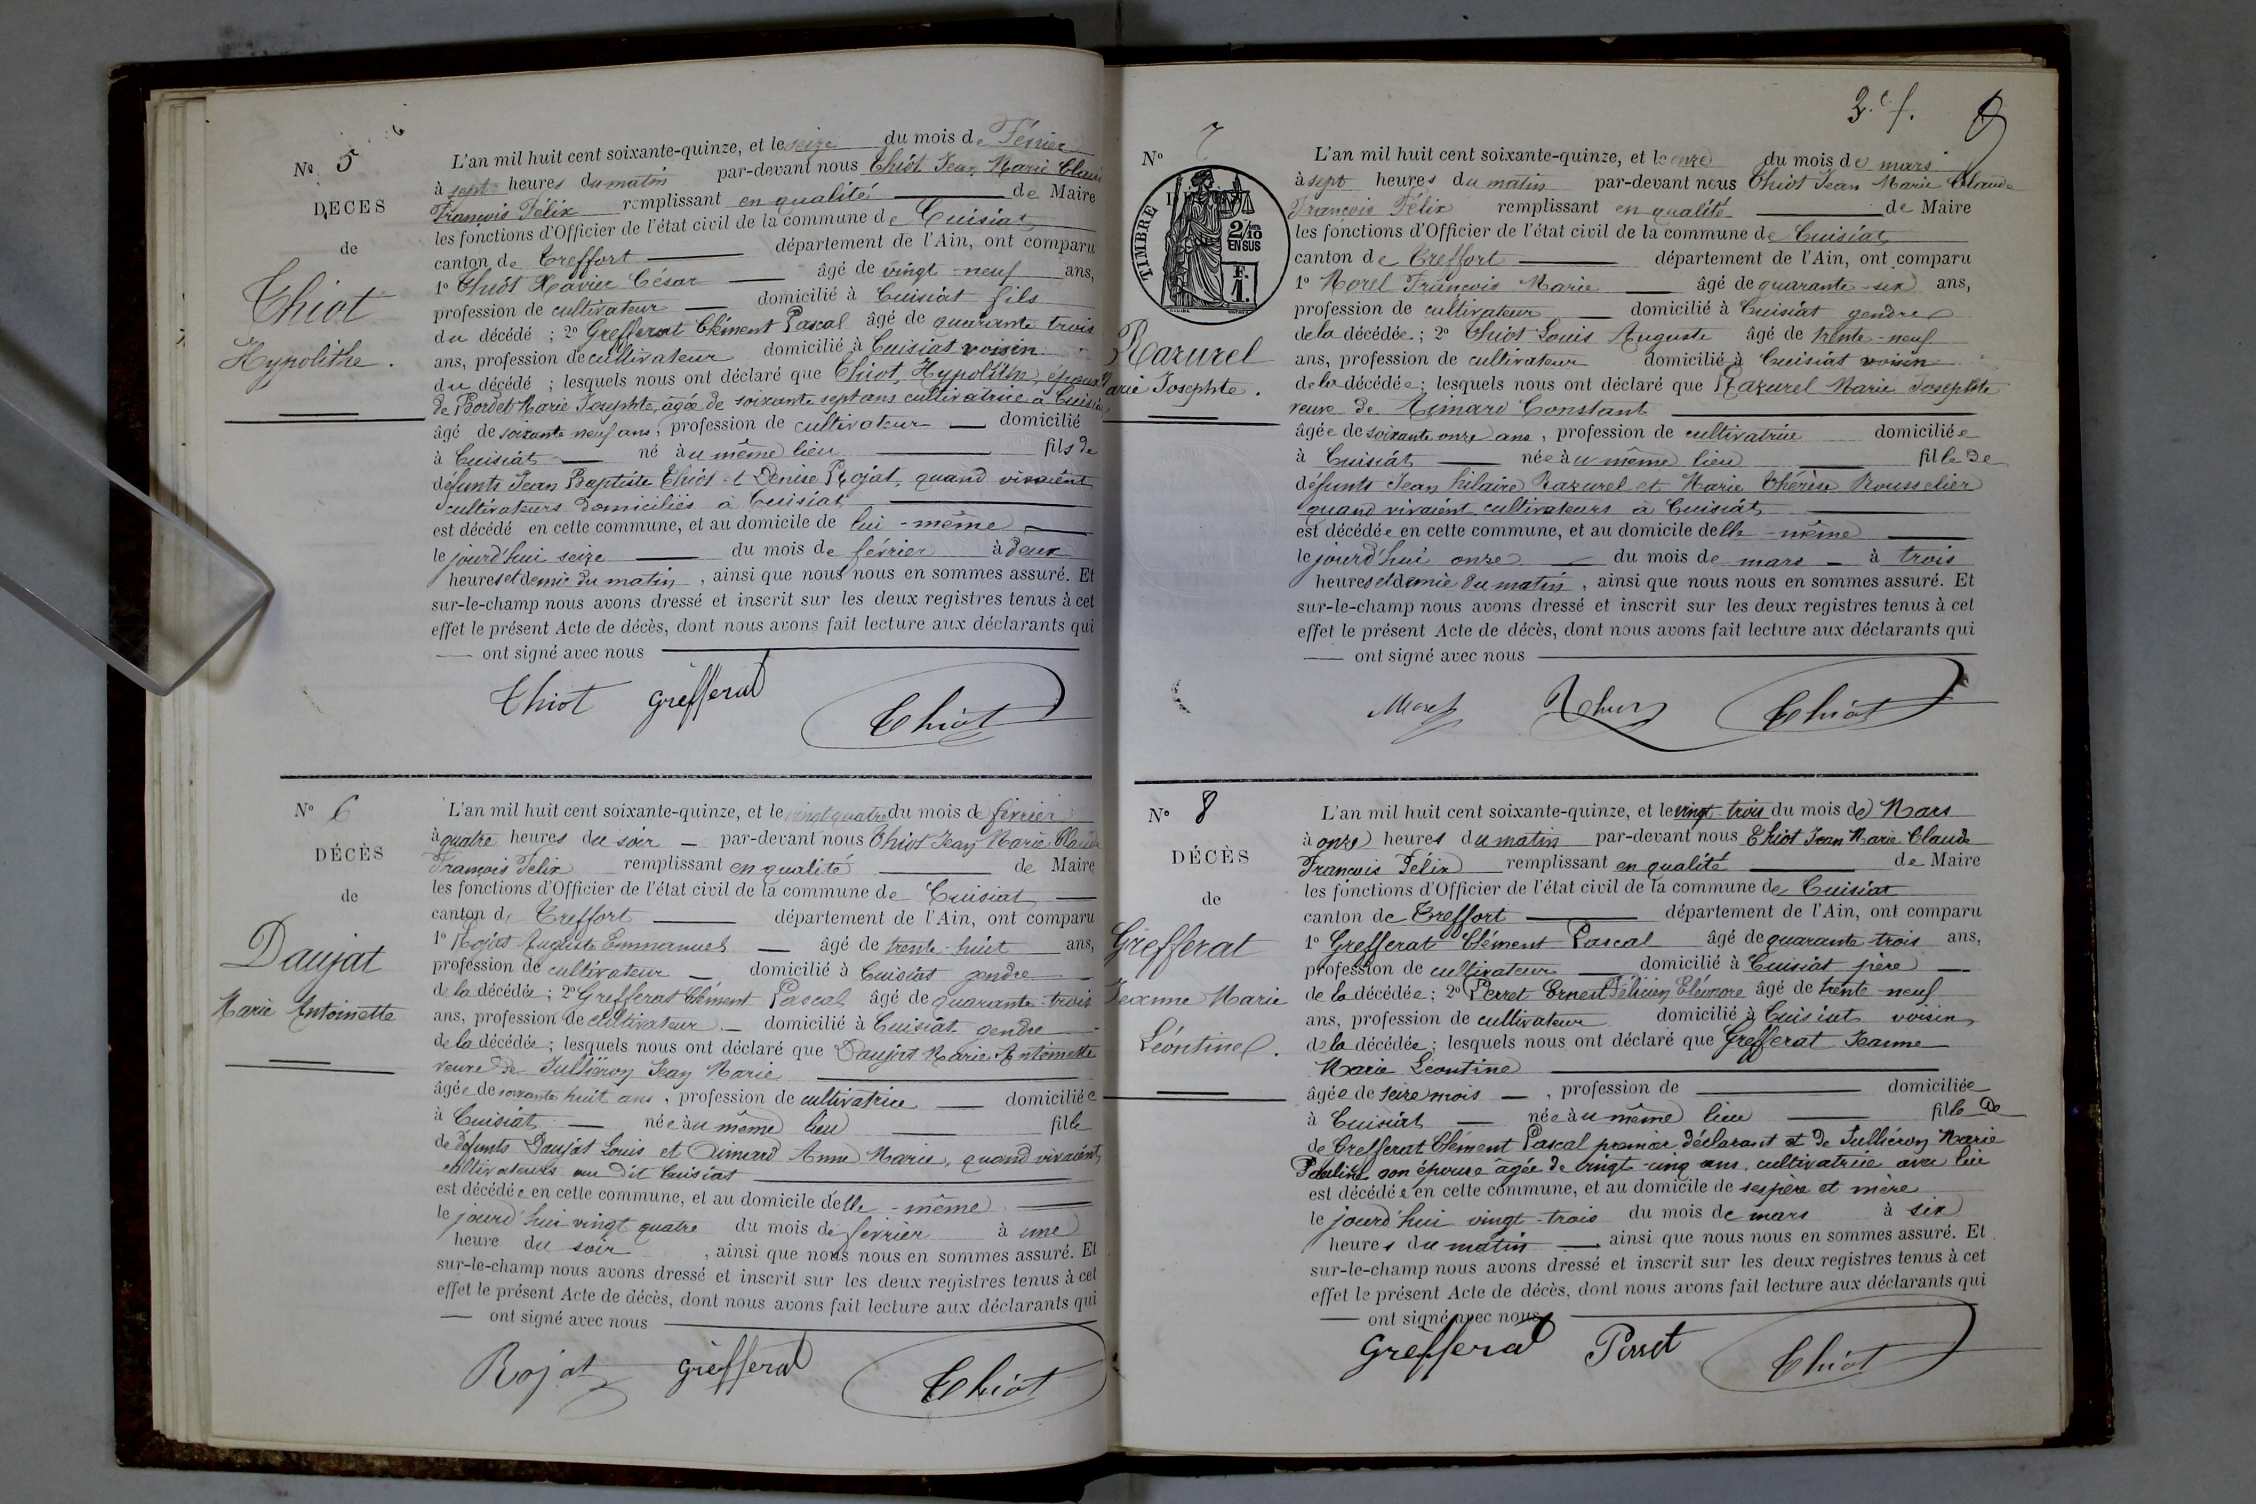 N° 5
DÉCÈS
de
Thiot
Hypolithe.
L'an mil huit cent soixante-quinze, et le seize du mois de Février
à sept heures du matin par-devant nous Thiot Jean Marie Claude
François Félix remplissant en qualité de Maire
les fonctions d'Officier de l'état civil de la commune de Cuisiat
canton de Treffort département de l'Ain, ont comparu
1° Thiot Xavier César âgé de vingt-neuf ans,
profession de cultivateur domicilié à Cuisiat fils
du décédé ; 2° Grefferat Clément Pascal âgé de quarante trois
ans, profession de cultivateur domicilié à Cuisiat voisin
du décédé ; lesquels nous ont déclaré que Thiot, Hypolithe, époux
de Bordet Marie Josephte, âgée de soixante sept ans cultivatrice à Cuisiat,
âgé de soixante neuf ans, profession de cultivateur domicilié
à Cuisiat né au même lieu fils de
défunts Jean Baptiste Thiot et Denise Rojat, quand vivaient
cultivateurs domiciliés à Cuisiat
est décédé en cette commune, et au domicile de lui-même
le jourd'hui seize du mois de février à deux
heures et demie du matin, ainsi que nous nous en sommes assuré. Et
sur-le-champ nous avons dressé et inscrit sur les deux registres tenus à cet
effet le présent Acte de décès, dont nous avons fait lecture aux déclarants qui
ont signé avec nous
Thiot Grefferat Thiot
N° 6
DÉCÈS
de
Daujat
Marie Antoinette
L'an mil huit cent soixante-quinze, et le vingt quatre du mois de février
à quatre heures du soir par-devant nous Thiot Jean Marie Claude
François Félix remplissant en qualité de Maire
les fonctions d'Officier de l'état civil de la commune de Cuisiat
canton de Treffort département de l'Ain, ont comparu
1° Rojat Auguste Emmanuel âgé de trente-huit ans,
profession de cultivateur domicilié à Cuisiat gendre
de la décédée ; 2° Grefferat Clément Pascal âgé de quarante-trois
ans, profession de cultivateur domicilié à Cuisiat gendre
de la décédée ; lesquels nous ont déclaré que Daujat Marie Antoinette
veuve de Julliéron Jean Marie
âgée de soixante huit ans, profession de cultivatrice domiciliée
à Cuisiat née au même lieu fille
de défunts Daujat Louis et Dimard Anne Marie, quand vivaient,
cultivateurs au dit Cuisiat
est décédée en cette commune, et au domicile d'elle-même
le jourd'hui vingt quatre du mois de février à une
heure du soir, ainsi que nous nous en sommes assuré. Et
sur-le-champ nous avons dressé et inscrit sur les deux registres tenus à cet
effet le présent Acte de décès, dont nous avons fait lecture aux déclarants qui
ont signé avec nous
Rojat Grefferat Thiot
3.e f.
N° 7
TIMBRE
2/10 EN SUS
F. 1.
Razurel
Marie Josephte.
L'an mil huit cent soixante-quinze, et le onze du mois de mars
à sept heures du matin par-devant nous Thiot Jean Marie Claude
François Félix remplissant en qualité de Maire
les fonctions d'Officier de l'état civil de la commune de Cuisiat
canton de Treffort département de l'Ain, ont comparu
1° Morel François Marie âgé de quarante-six ans,
profession de cultivateur domicilié à Cuisiat gendre
de la décédée ; 2° Thiot Louis Auguste âgé de trente-neuf
ans, profession de cultivateur domicilié à Cuisiat voisin
de la décédée ; lesquels nous ont déclaré que Razurel Marie Josephte
veuve de Constant
âgée de soixante onze ans, profession de cultivatrice domiciliée
à Cuisiat née au même lieu fille de
défunts Jean hilaire Razurel et Marie Thérèse Rousselier
quand vivaient cultivateurs à Cuisiat,
est décédée en cette commune, et au domicile d'elle-même
le jourd'hui onze du mois de mars à trois
heures et demie du matin, ainsi que nous nous en sommes assuré. Et
sur-le-champ nous avons dressé et inscrit sur les deux registres tenus à cet
effet le présent Acte de décès, dont nous avons fait lecture aux déclarants qui
ont signé avec nous
Morel Thiot
N° 8
DÉCÈS
de
Grefferat
Jeanne Marie
Léontine.
L'an mil huit cent soixante-quinze, et le vingt-trois du mois de Mars
à onze heures du matin par-devant nous Thiot Jean Marie Claude
François Félix remplissant en qualité de Maire
les fonctions d'Officier de l'état civil de la commune de Cuisiat
canton de Treffort département de l'Ain, ont comparu
1° Grefferat Clément Pascal âgé de quarante trois ans,
profession de cultivateur domicilié à Cuisiat père
de la décédée ; 2° Perret Ernest Félicien Eléonore âgé de trente-neuf
ans, profession de cultivateur domicilié à Cuisiat voisin
de la décédée ; lesquels nous ont déclaré que Grefferat Jeanne
Marie Léontine
âgée de seize mois, profession de domiciliée
à Cuisiat née au même lieu fille de
de Grefferat Clément Pascal premier déclarant et de Julliéron Marie
Pauline son épouse âgée de vingt-cinq ans, cultivatrice avec lui
est décédée en cette commune, et au domicile de ses père et mère
le jourd'hui vingt-trois du mois de mars à six
heures du matin ainsi que nous nous en sommes assuré. Et
sur-le-champ nous avons dressé et inscrit sur les deux registres tenus à cet
effet le présent Acte de décès, dont nous avons fait lecture aux déclarants qui
ont signé avec nous
Grefferat Perret Thiot